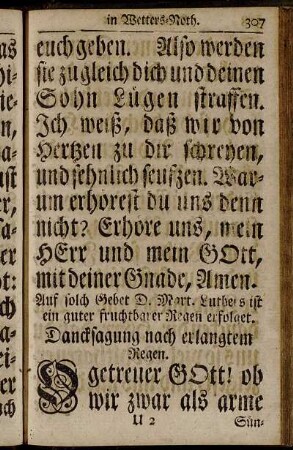 in Wetters-Noth. 307
euch geben. Also werden
sie zugleich dich und deinen
Sohn Lügen straffen.
Ich weiß, daß wir von
Hertzen zu dir schreyen,
und sehnlich seufzen. War-
um erhörest du uns denn
nicht? Erhöre uns, mein
HErr und mein GOtt,
mit deiner Gnade, Amen.
Auf solch Gebet D. Mart. Luthers ist
ein guter fruchtbarer Regen erfolget.
Dancksagung nach erlangtem
Regen.
O getreuer GOtt! ob
wir zwar als arme
U 2 Sün-